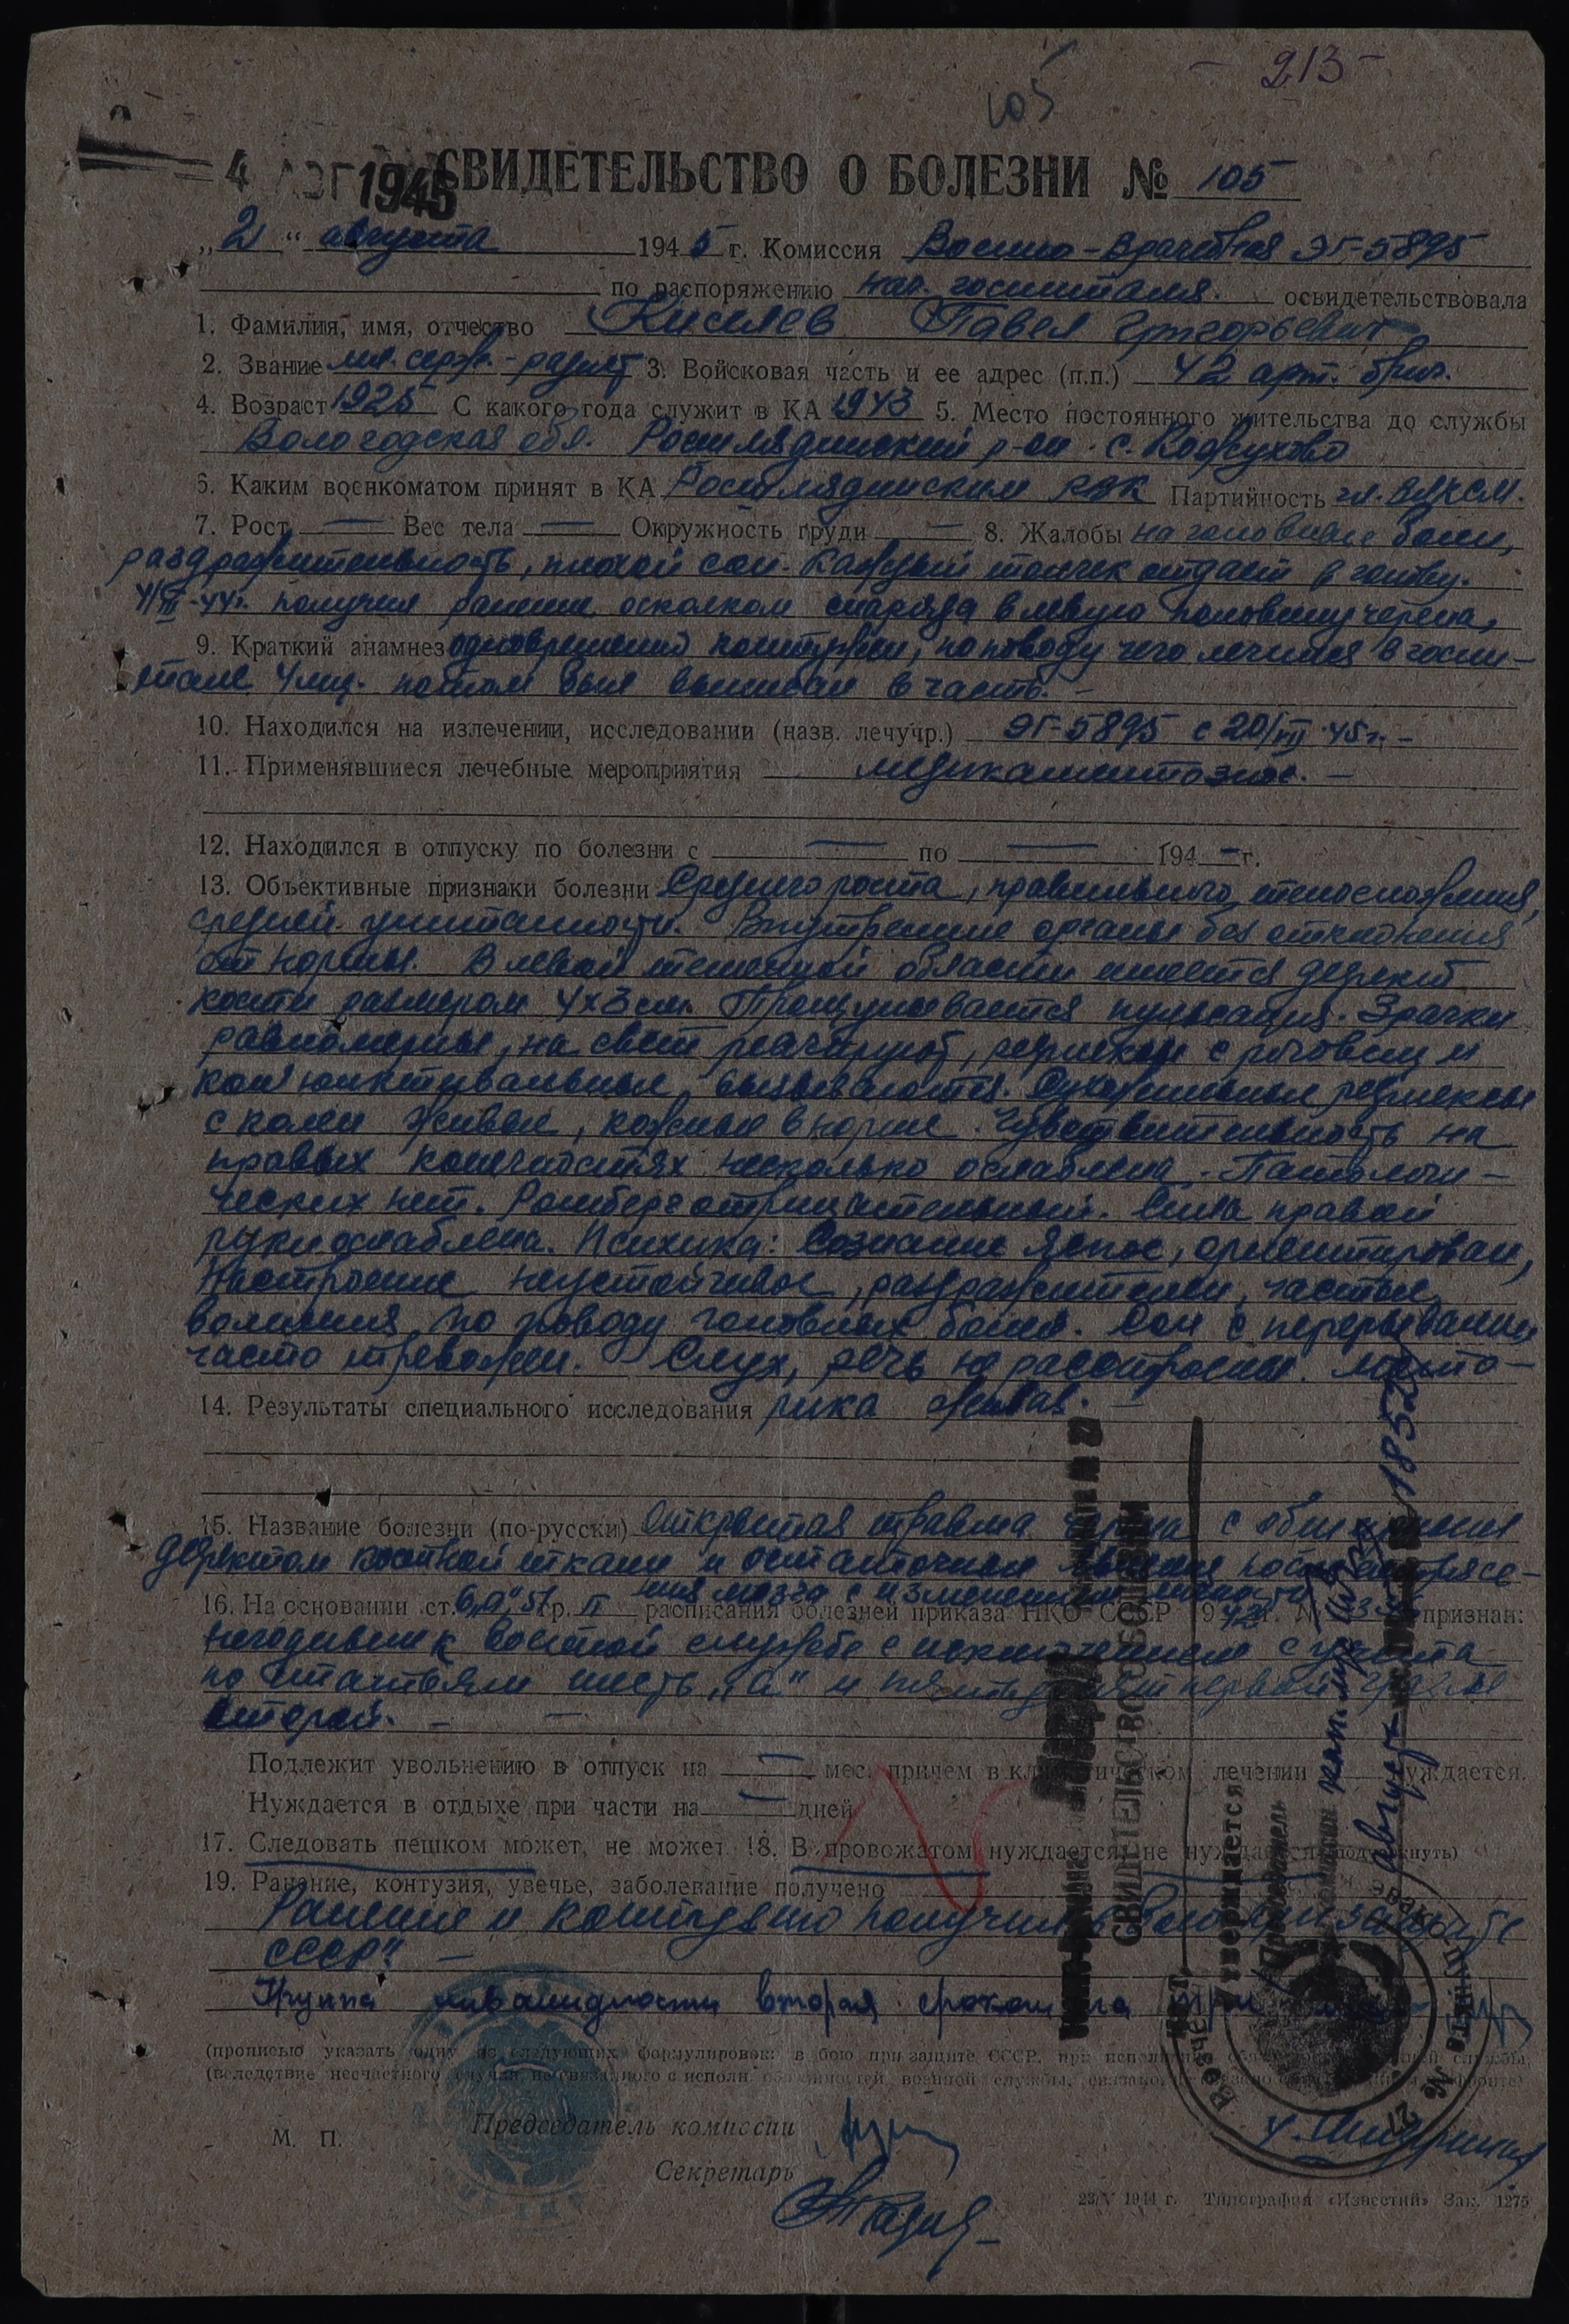 - 213 -
105
4 АВГ 1945
СВИДЕТЕЛЬСТВО О БОЛЕЗНИ № 105
„2“ августа 1945 г. Комиссия Военно-врачебная ЭГ-5895
по распоряжению нач. госпиталя. освидетельствовала
1. Фамилия, имя, отчество Киселев Павел Григорьевич
2. Звание мл. серж.-радист 3. Войсковая часть и ее адрес (п.п.) 42 арт. бриг.
4. Возраст 1925 С какого года служит в КА 1943 5. Место постоянного жительства до службы
Вологодская обл. Рослядинский р-он. с. Кожухово
6. Каким военкоматом принят в КА Рослядинским РВК Партийность чл. ВЛКСМ.
7. Рост — Вес тела — Окружность груди — 8. Жалобы на головные боли,
раздражительность, плохой сон. Каждый толчек отдает в голову.
4/III-44г. получил ранение осколком снаряда в левую половину черепа,
9. Краткий анамнез одновременно контужен, по поводу чего лечился в госпи-
тале 4 мес. потом был выписан в часть. -
10. Находился на излечении, исследовании (назв. лечучр.) ЭГ-5895 с 20/VII 45г. -
11. Применявшиеся лечебные мероприятия медикаментозное. —
12. Находился в отпуску по болезни с — по — 194 - г.
13. Объективные признаки болезни Среднего роста, правильного телосложения,
средней упитанности. Внутренние органы без отклонения
от нормы. В левой теменной области имеется дефект
кости размером 4х3 см. Прощупывается пульсация. Зрачки
равномерные, на свет реагируют, рефлексы с роговиц и
кон'юнктивальные вызываются. Сухожильные рефлексы
с колен живые, кожные в норме. Чувствительность на
правых конечностях несколько ослаблена. Патологи-
ческих нет. Ромберг отрицательный. Сила правой
руки ослаблена. Психика: Сознание ясное, ориентирован,
настроение неустойчивое, раздражителен, частые
волнения по поводу головных болей. Сон с перерывами
часто тревожен. Слух, речь не расстроены. Мото-
14. Результаты специального исследования рика живая. —
15. Название болезни (по-русски) Открытая травма черепа с обширным
дефектом костной ткани и остаточные явления после сотрясе-
ния мозга с изменениями
16. На основании ст. 6„а“, 51 гр. II расписания болезней приказа НКО СССР 1942г. № признан:
негодным к военной службе с исключением с учета
по статьям шесть „а“ и пятьдесят первой графе
второй. — —
Подлежит увольнению в отпуск на — мес. причем в климатическом лечении нуждается.
Нуждается в отдыхе при части на — дней
17. Следовать пешком может, не может 18. В провожатом нуждается, не нуждается (подчеркнуть)
19. Ранение, контузия, увечье, заболевание получено
Ранение и контузию получил в бою при защите
СССР“ —
Группа инвалидности вторая сроком на три
(прописью указать одну из следующих формулировок: в бою при защите СССР, при исполнении обязанностей военной службы,
(вследствие несчастного случая не связанного с исполн. обязанностей военной службы,
Председатель комиссии
М. П.
Секретарь
СВИДЕТЕЛЬСТВО О БОЛЕЗНИ
Утверждается
Председатель
август
23/V 1944 г. Типография «Известий» Зак. 1275